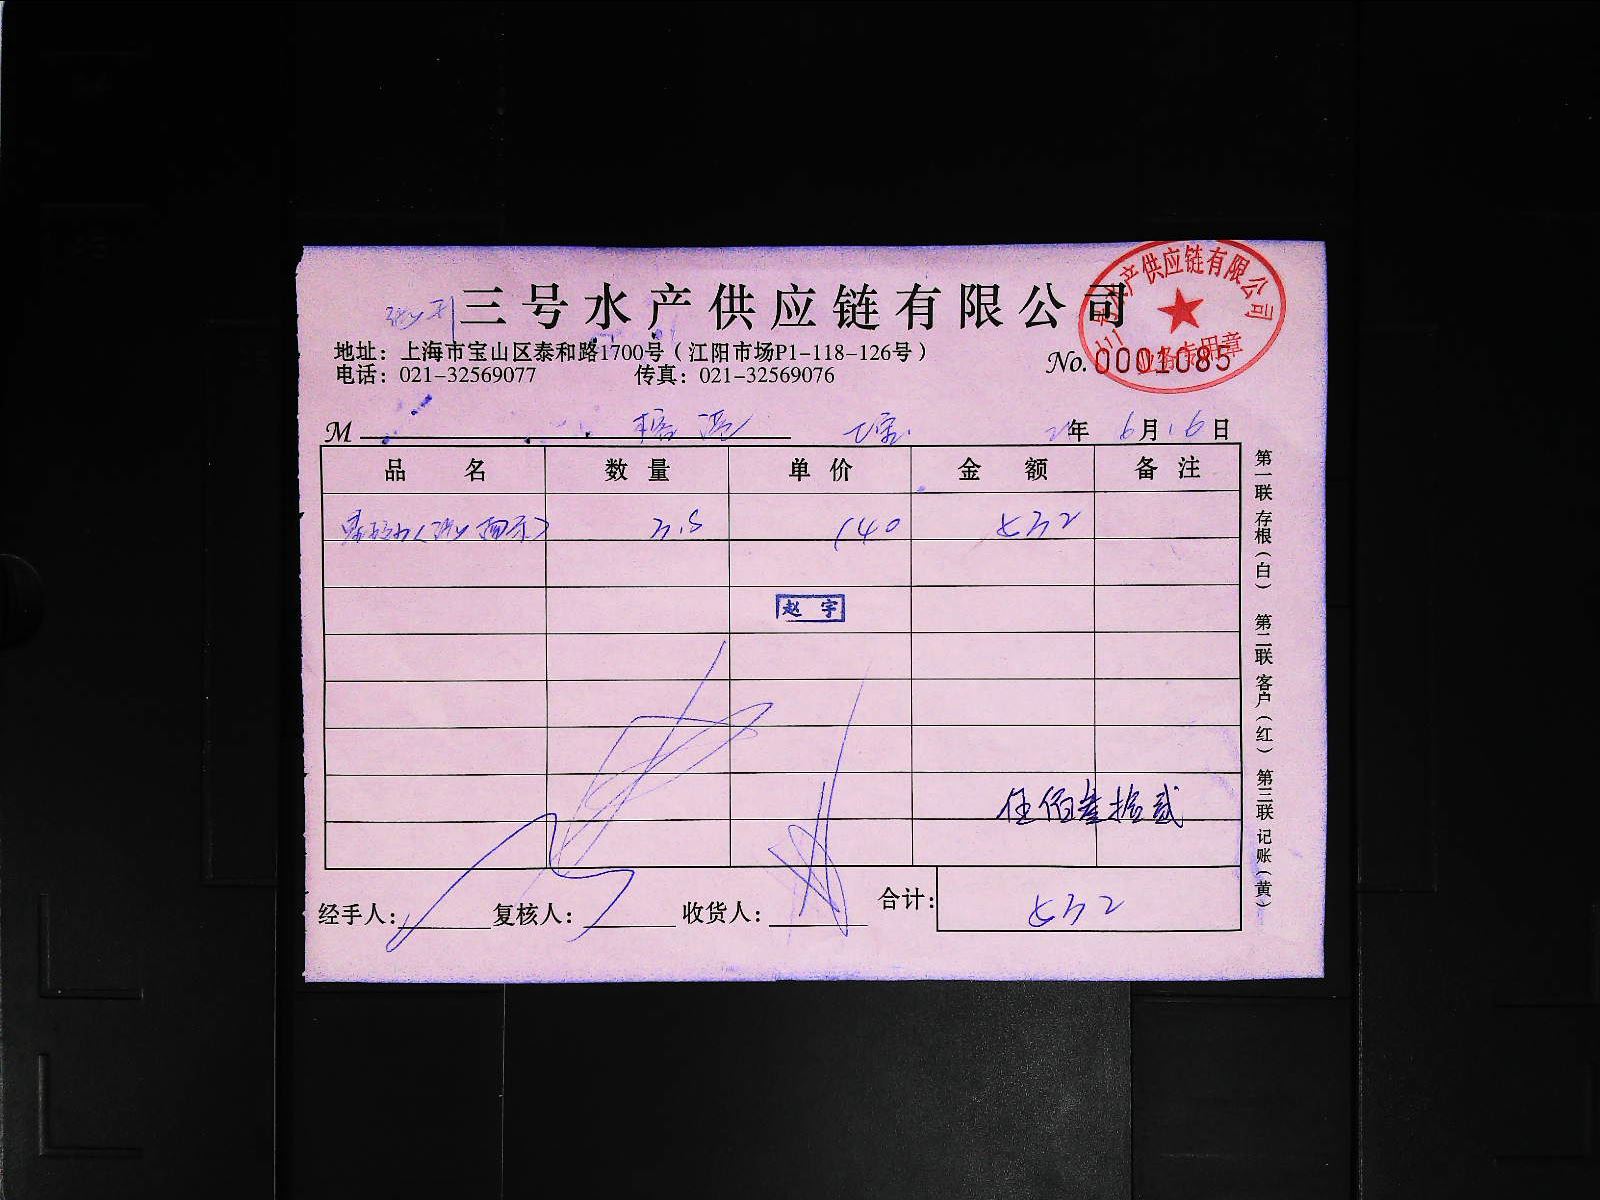 三号水产供应链有限公司
地址：上海市宝山区泰和路1700号（江阳市场P1-118-126号）
电话：021-32569077 传真：021-32569076
No.0001085
水产供应链有限公司
业务专用章
M 年 6月16日
品名 数量 单价 金额 备注
140 532
赵宇
伍佰叁拾贰
经手人： 复核人： 收货人： 合计：532
第一联 存根（白） 第二联 客户（红） 第三联 记账（黄）